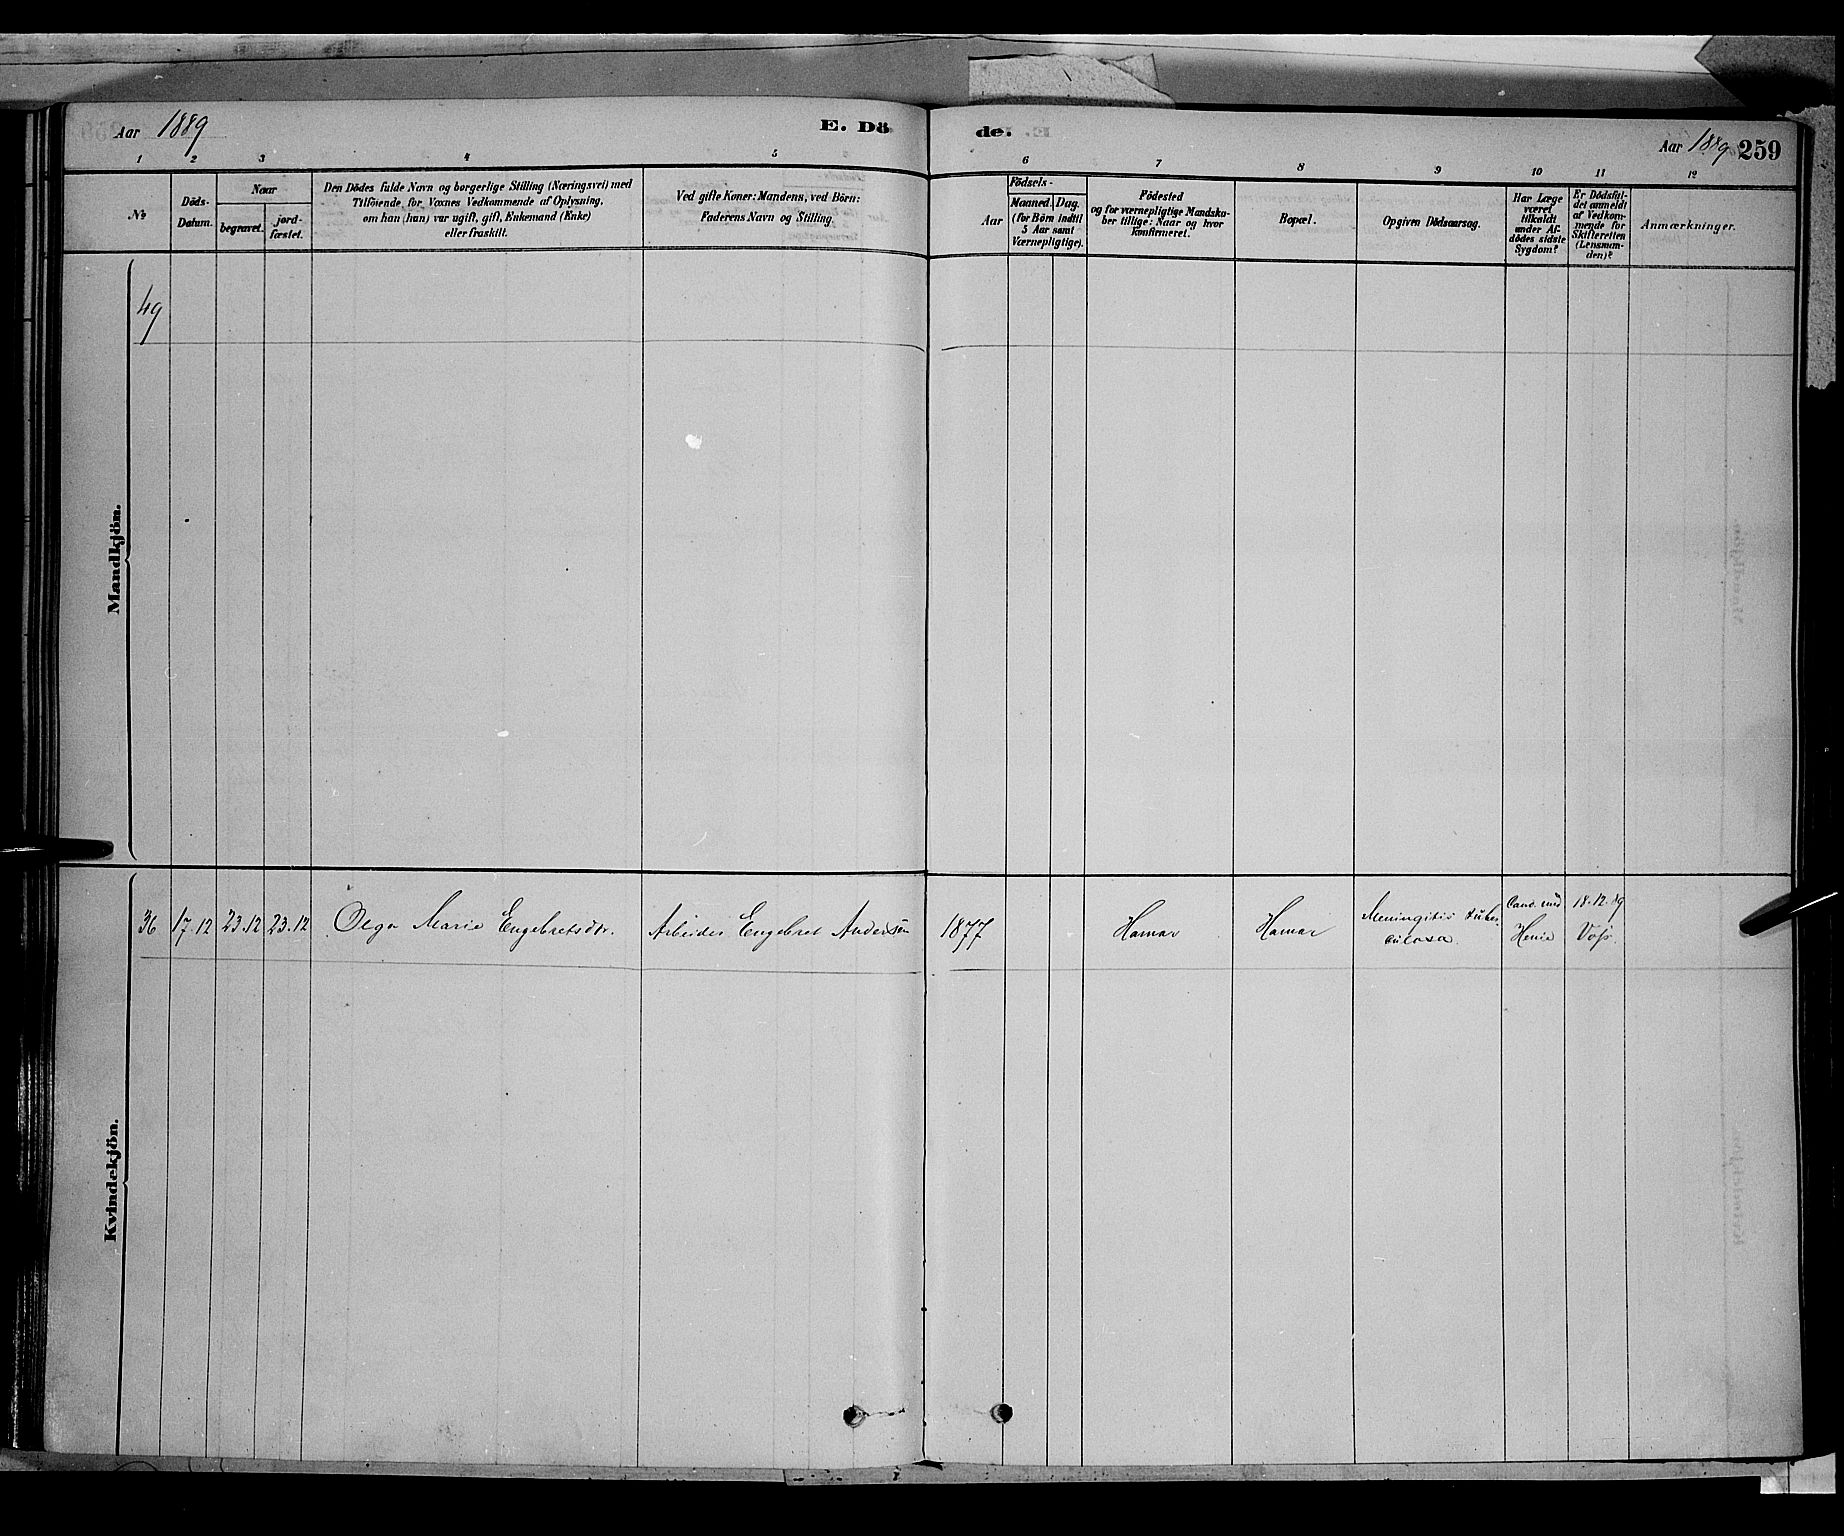 Aar 1889
E. Dö
de.
Aar 1889
259
1 2 3 4 5 6 7 8 9 10 11 12
No
Döds-
Datum.
Naar
begravet.
jord-
fæstet.
Den Dödes fulde Navn og borgerlige Stilling (Næringsvei) med
Tilföiende, for Voxnes Vedkommende af Oplysning,
om han (hun) var ugift, gift, Enkemand (Enke)
eller fraskilt.
Ved gifte Koner: Mandens, ved Börn:
Faderens Navn og Stilling.
Födsels-
Aar
Maaned.
Dag.
(for Börn indtil
5 Aar samt
Værnepligtige).
Födested
og for værnepligtige Mandska-
ber tillige: Naar og hvor
konfirmeret.
Bopæl.
Opgiven Dödsaarsag.
Har Læge
været
tilkaldt
under Af-
dödes sidste
Sygdom?
Er Dödsfal-
det anmeldt
af Vedkom-
mende for
Skifteretten
(Lensman-
den)?
Anmærkninger.
Mandkjön.
49
Kvindekjön.
36 17.12 23.12 23.12 Olga Marie Engebretsdtr. Arbeider Engebret Andersen 1877 Hamar Hamar
Meningitis tuber
culosa.
Cand. med
Henie
18.12.89